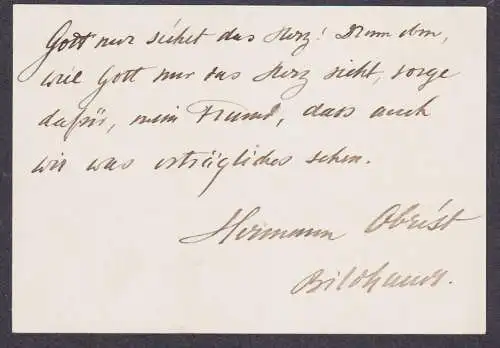 Gott nur siehet das Herz! Drum eben,
weil Gott nur das Herz sieht, sorge
dafür, mein Freund, dass auch
wir was erträgliches sehen.
Hermann Obrist
Bildhauer.